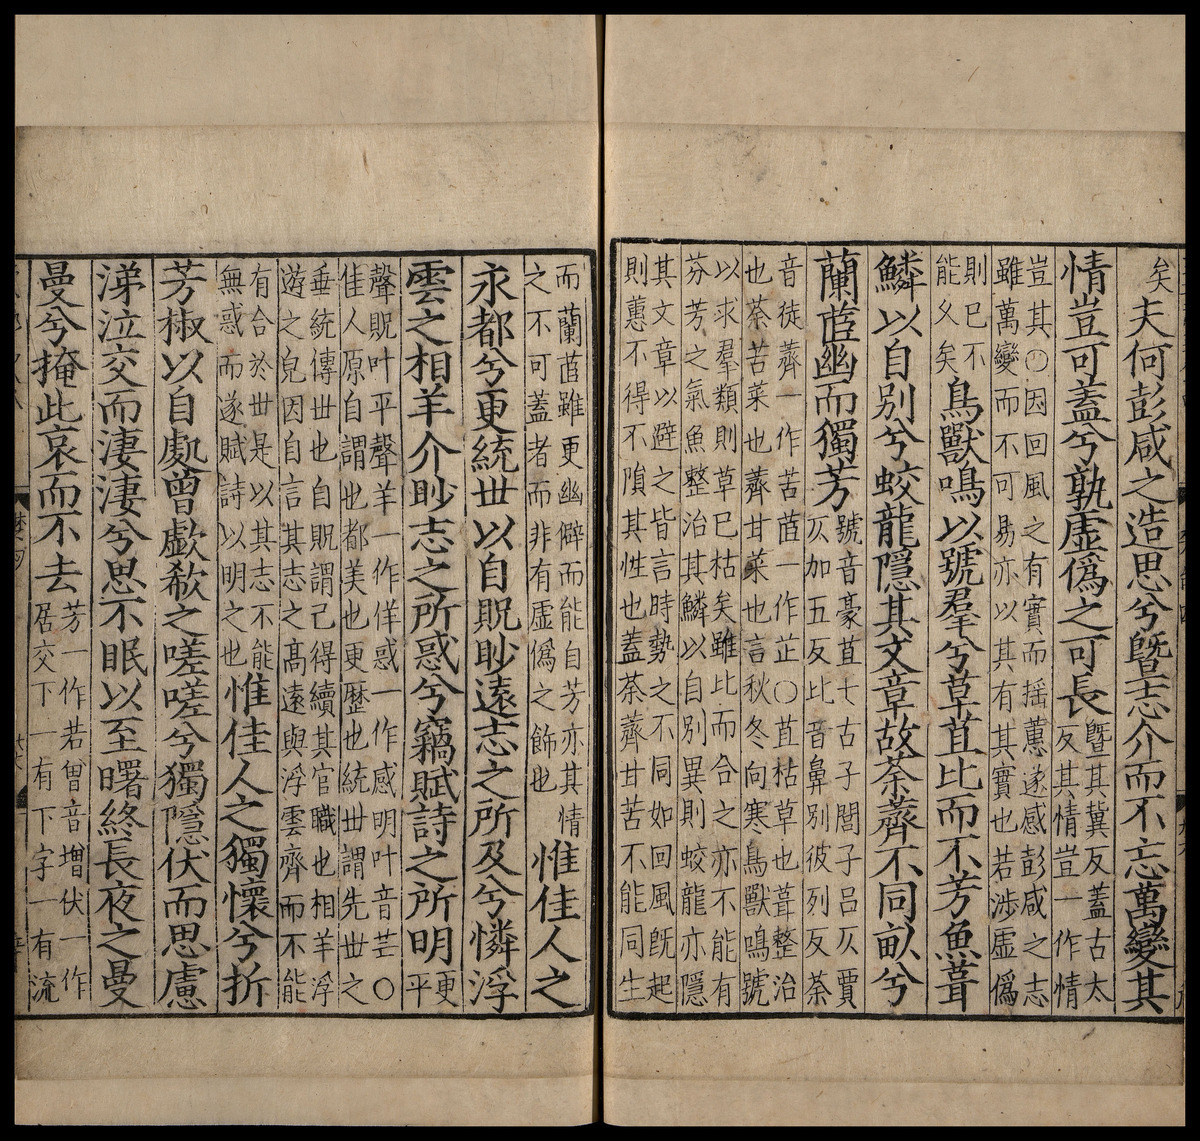 矣夫何彭咸之造思兮暨志介而不忘萬變其
情豈可蓋兮孰虛僞之可長
暨其冀反蓋古太
反其情豈一作情
豈其〇因回風之有實而摇蕙遂感彭咸之志
雖萬變而不可易亦以其有其實也若涉虛僞
則已不
能久矣
鳥獸鳴以號羣兮草苴比而不芳魚葺
鱗以自别兮蛟龍隱其文章故荼薺不同畝兮
蘭茝幽而獨芳
號音豪苴七古子閭子吕仄賈
仄加五反比音鼻别彼列反荼
音徒薺一作苦茝一作芷〇苴枯草也葺整治
也荼苦菜也薺甘菜也言秋冬向寒鳥獸鳴號
以求羣類則草已枯矣雖比而合之亦不能有
芬芳之氣魚整治其鱗以自别異則蛟龍亦隱
其文章以避之皆言時勢之不同如回風旣起
則蕙不得不隕其性也蓋荼薺甘苦不能同生
而蘭茝雖更幽僻而能自芳亦其情
之不可蓋者而非有虛僞之飾也
惟佳人之
永都兮更統丗以自貺眇遠志之所及兮憐浮
雲之相羊介眇志之所惑兮竊賦詩之所明
更
平
聲貺叶平聲羊一作佯惑一作感明叶音芒〇
佳人原自謂也都美也更歷也統丗謂先丗之
垂統傳丗也自貺謂己得續其官職也相羊浮
遊之皃因自言其志之髙遠與浮雲齊而不能
有合於丗是以其志不能
無惑而遂賦詩以明之也
惟佳人之獨懷兮折
芳椒以自處曾歔欷之嗟嗟兮獨隱伏而思慮
涕泣交而淒淒兮思不眠以至曙終長夜之曼
曼兮掩此哀而不去
芳一作若曾音增伏一作
居交下一有下字一有流